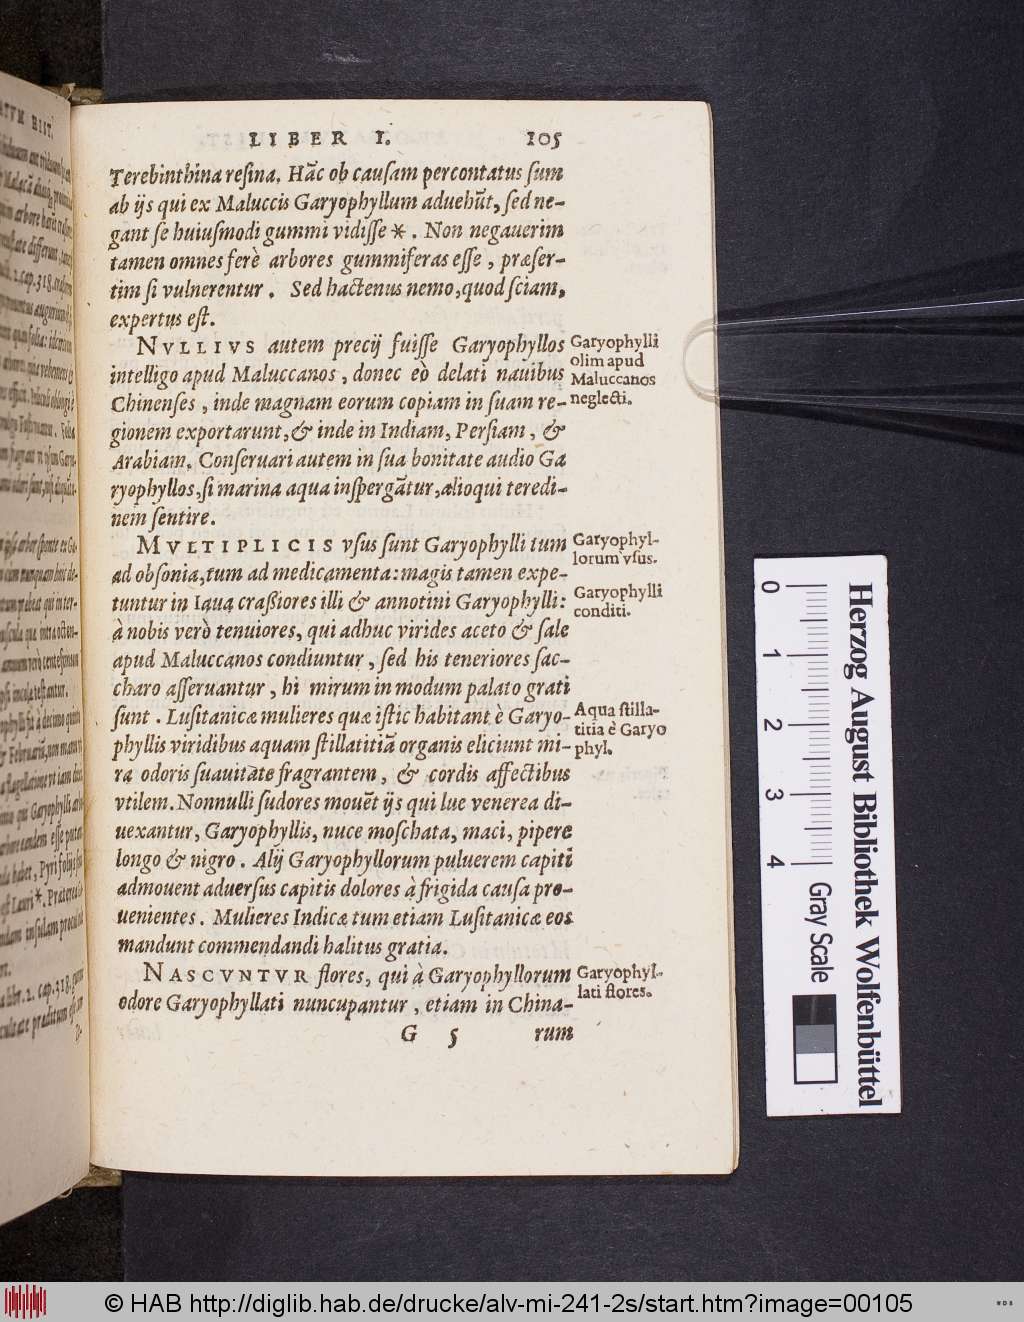 LIBER I. 105
Terebinthina resina. Hãc ob causam percontatus sum
ab ijs qui ex Maluccis Garyophyllum aduehũt, sed ne-
gant se huiusmodi gummi vidisse *. Non negauerim
tamen omnes ferè arbores gummiferas esse, præser-
tim si vulnerentur. Sed hactenus nemo, quod sciam,
expertus est.
NVLLIVS autem precij fuisse Garyophyllos
intelligo apud Maluccanos, donec eò delati nauibus
Chinenses, inde magnam eorum copiam in suam re-
gionem exportarunt, & inde in Indiam, Persiam, &
Arabiam. Conseruari autem in sua bonitate audio Ga
ryophyllos, si marina aqua inspergãtur, alioqui teredi-
nem sentire.
Garyophylli
olim apud
Maluccanos
neglecti.
MVLTIPLICIS vsus sunt Garyophylli tum
ad obsonia, tum ad medicamenta: magis tamen expe-
tuntur in Iaua crassiores illi & annotini Garyophylli:
à nobis verò tenuiores, qui adhuc virides aceto & sale
apud Maluccanos condiuntur, sed his teneriores sac-
charo asseruantur, hi mirum in modum palato grati
sunt. Lusitanicæ mulieres quæ istic habitant è Garyo-
phyllis viridibus aquam stillatitiã organis eliciunt mi-
ra odoris suauitate fragrantem, & cordis affectibus
vtilem. Nonnulli sudores mouẽt ijs qui lue venerea di-
uexantur, Garyophyllis, nuce moschata, maci, pipere
longo & nigro. Alij Garyophyllorum puluerem capiti
admouent aduersus capitis dolores à frigida causa pro-
uenientes. Mulieres Indicæ tum etiam Lusitanicæ eos
mandunt commendandi halitus gratia.
Garyophyl-
lorum vsus.
Garyophylli
conditi.
Aqua stilla-
titia è Garyo
phyl.
NASCVNTVR flores, qui à Garyophyllorum
odore Garyophyllati nuncupantur, etiam in China-
Garyophyl-
lati flores.
G 5 rum
0
1
2
3
4
Gray Scale
Herzog August Bibliothek Wolfenbüttel
© HAB http://diglib.hab.de/drucke/alv-mi-241-2s/start.htm?image=00105